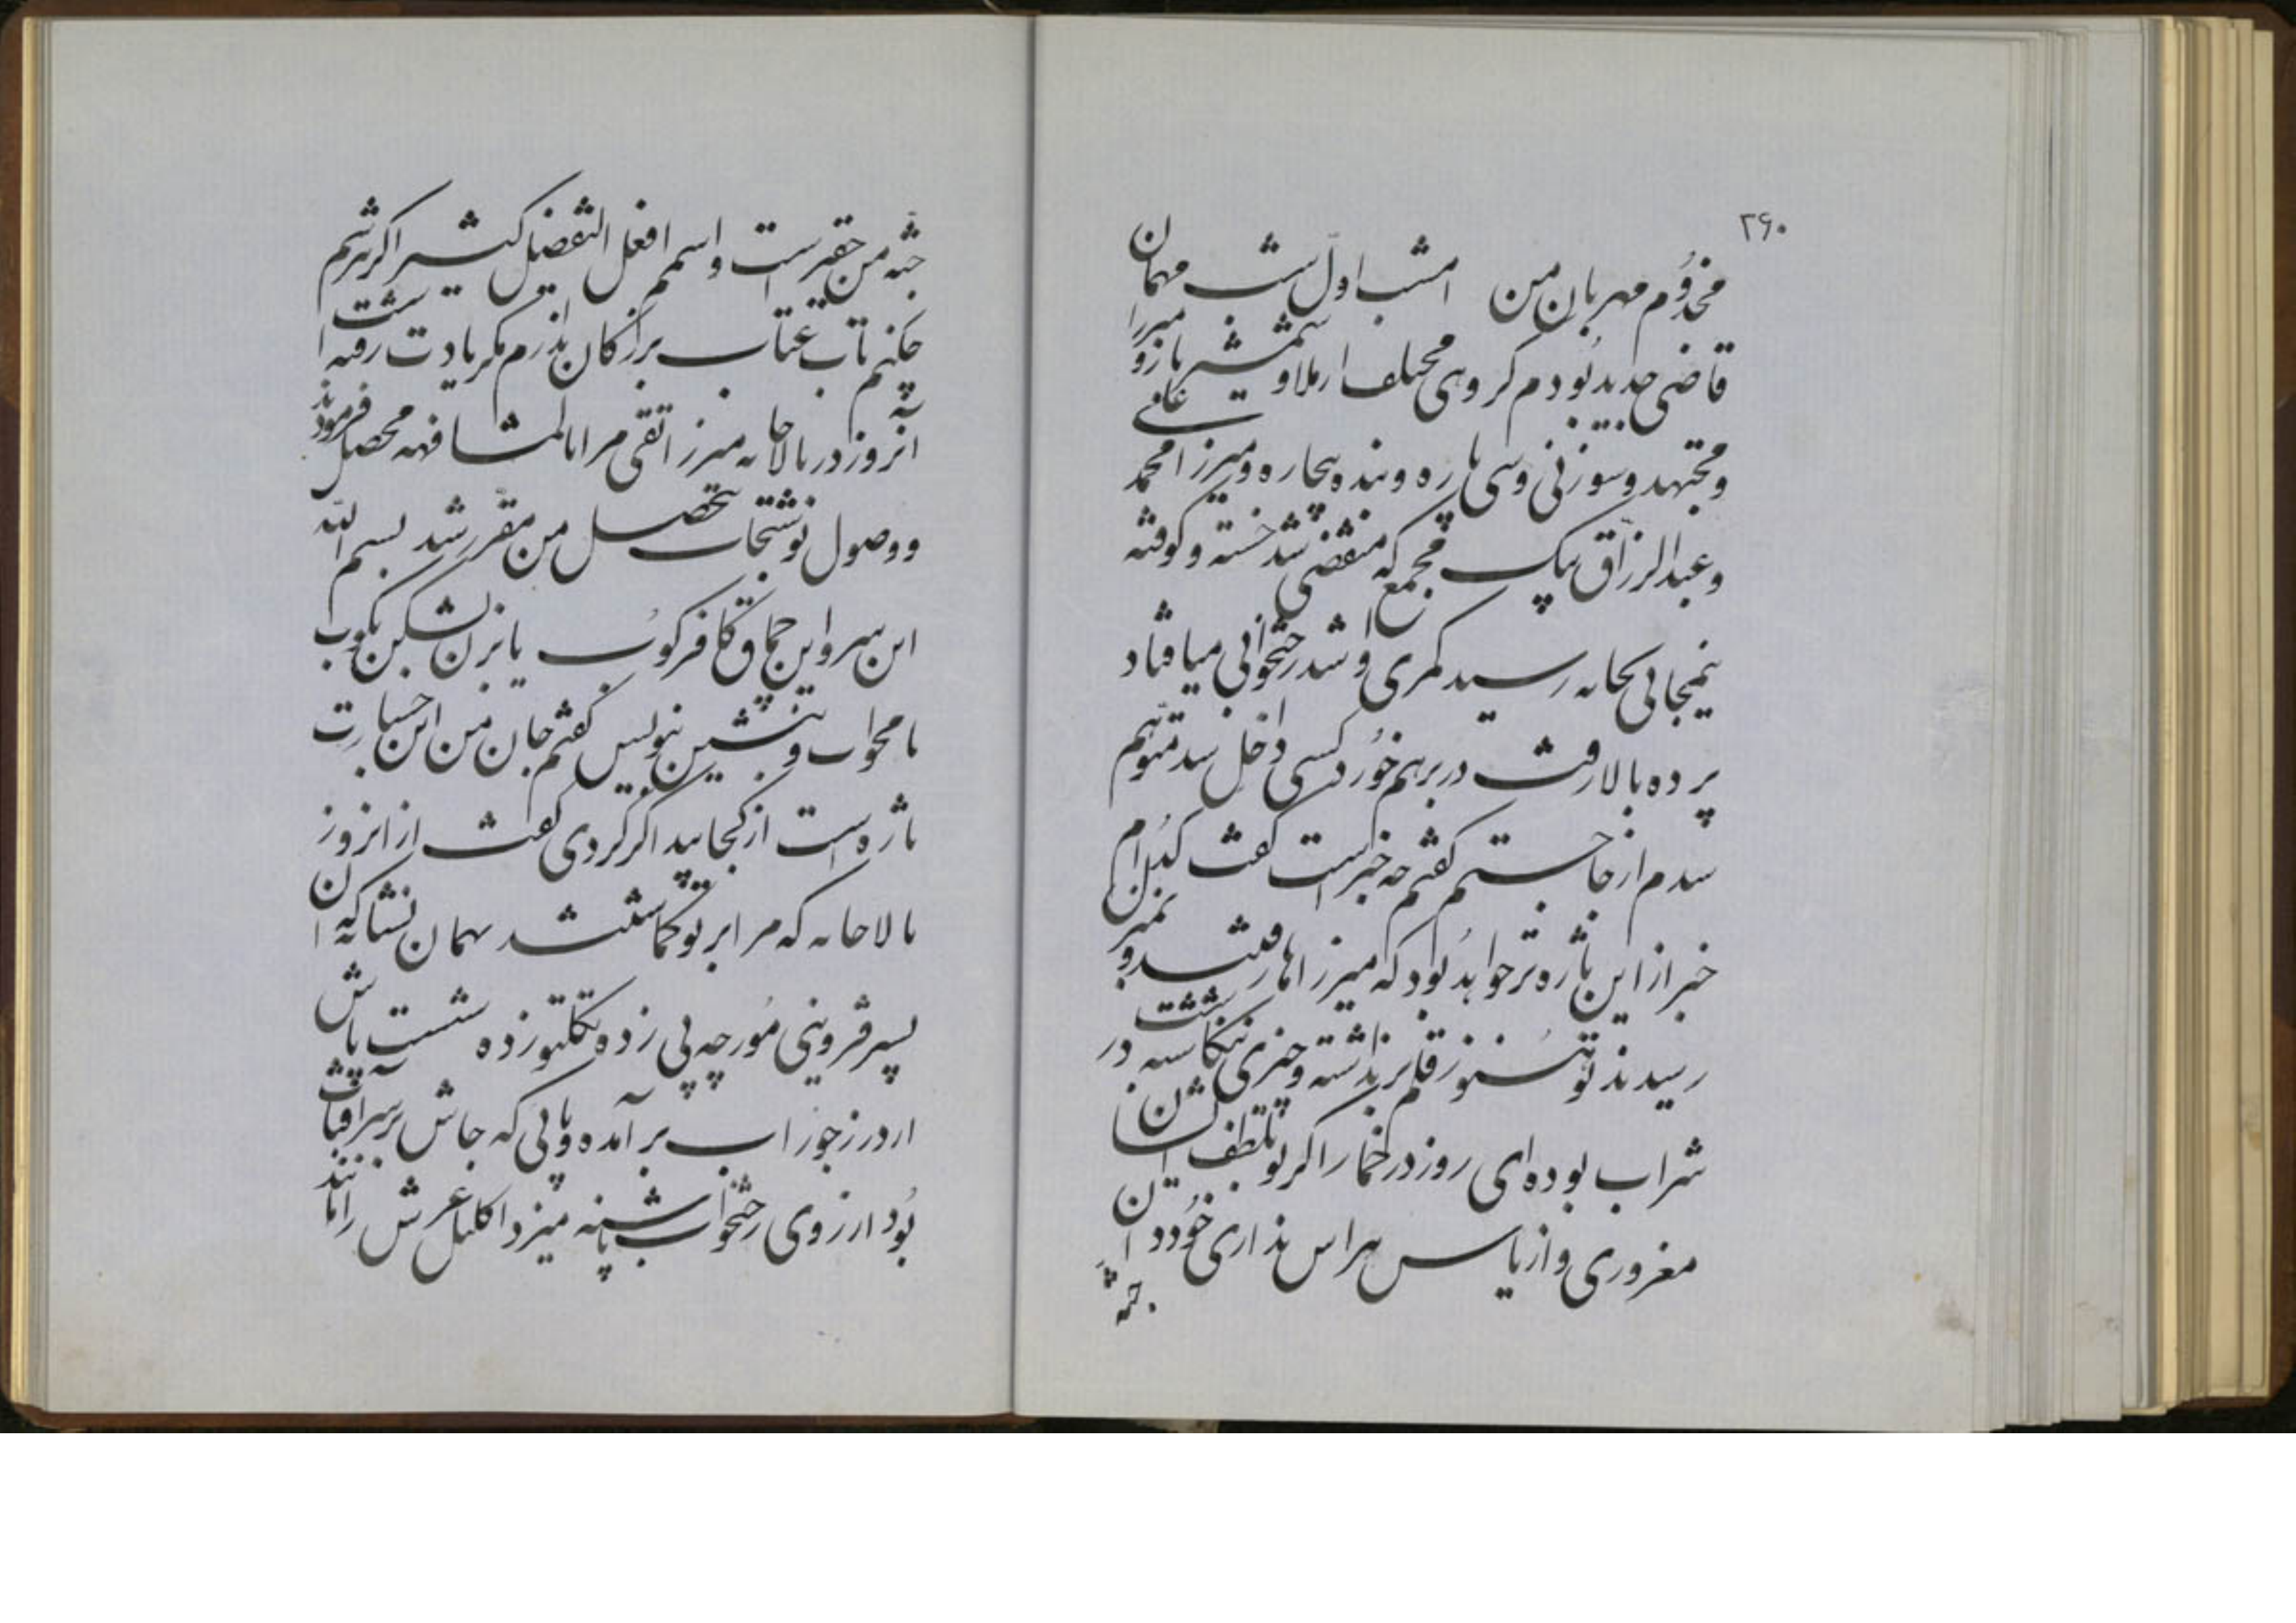 ۲۶۰
مخدوم مهربان من امشب اول شب مهمان
قاضی جدید بودم گروهی مختلف از ملا و شمشیر بازو میرزا
و مجتهد و سوزنی و سی پاره و بنده بیچاره و میرزا محمد
و عبدالرزاق بیک مجمع که منقضی شد خسته و کوفته
نیمجانی بخانه رسید کمری وا شد رختخوابی میافتاد
پرده بالا رفت در برهم خورد کسی داخل شد متوهم
شدم از جا جستم گفتم چه خبر است گفت کدام
خبر از این تازه تر خواهد بود که میرزاها رفتند و
رسیدند تو هنوز قلم بر نداشته و چیزی ننگاشته در
شراب بوده ای روز در خمار اگر بو تلطف ایشان
مغروری و از یاس هراس نداری خود دان
جثه
جثه من حقیر است و اسم افعل التفضیل کثیر اگر بترسم
چکنم تاب عتاب بزرگان ندارم مگر یادت رفته است
آنروز در بالاخانه میرزا تقی مرا بالمشافهه محصل فرمودند
و وصول نوشتجات بتحصیل من مقرر شد بسم الله
این سر و این چماق کافرکوب یا بزن بشکن بکوب
یا مخواب و بنشین بنویس گفتم جان من این جسارت
تازه است از کجا پیدا کردی گفت از آنروز
بالاخانه که مرا بر تو گماشتند بهمان نشان که آن
پسر قزوینی مورچه پی زده تکلتو زده شست پاش
از درز جوراب بر آمده و پائی که جاش بر سر آفتاب
بود از روی رختخواب پاشنه میزد اکلیل عرش را مانند